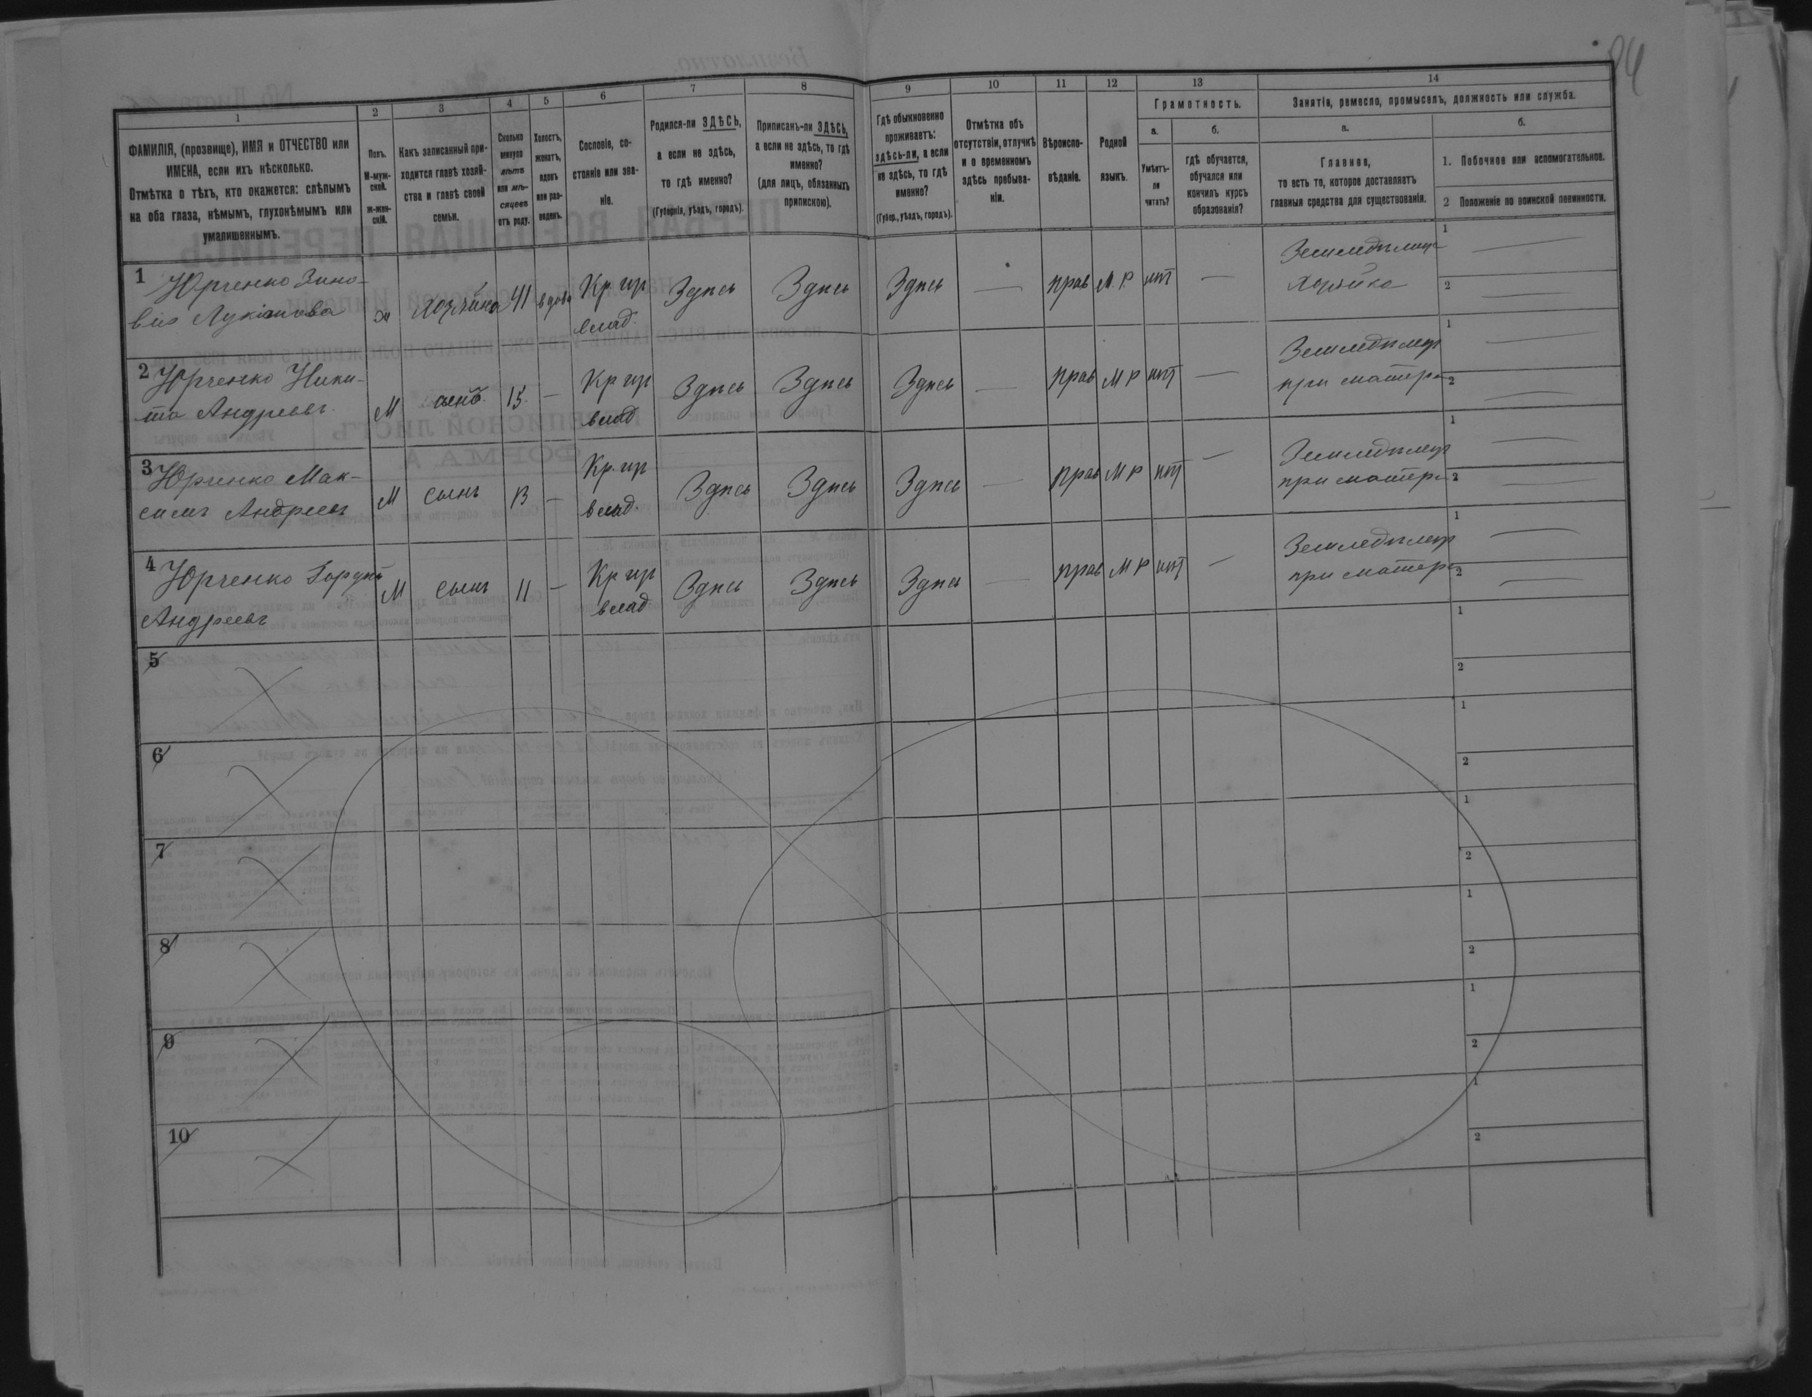 84
1
2
3
4
5
6
7
8
9
10
11
12
13
14
ФАМИЛІЯ, (прозвище), ИМЯ и ОТЧЕСТВО или
ИМЕНА, если ихъ нѣсколько.
Отмѣтка о тѣхъ, кто окажется: слѣпымъ
на оба глаза, нѣмымъ, глухонѣмымъ или
умалишеннымъ.
Полъ.
М-муж-
ской.
ж-жен-
скій.
Какъ записанный при-
ходится главѣ хозяй-
ства и главѣ своей
семьи.
Сколько
минуло
лѣтъ
или мѣ-
сяцевъ
отъ роду.
Холостъ,
женатъ,
вдовъ
или раз-
веденъ.
Сословіе, со-
стояніе или зва-
ніе.
Родился-ли ЗДѢСЬ,
а если не здѣсь,
то гдѣ именно?
(Губернія, уѣздъ, городъ).
Приписанъ-ли ЗДѢСЬ,
а если не здѣсь, то гдѣ
именно?
(для лицъ, обязанныхъ
припискою).
Гдѣ обыкновенно
проживаетъ:
здѣсь-ли, а если
не здѣсь, то гдѣ
именно?
(Губер., уѣздъ, городъ).
Отмѣтка объ
отсутствіи, отлучкѣ
и о временномъ
здѣсь пребыва-
ніи.
Вѣроиспо-
вѣданіе.
Родной
языкъ.
Грамотность.
а.
б.
Умѣетъ-
ли
читать?
гдѣ обучается,
обучался или
кончилъ курсъ
образованія?
Занятія, ремесло, промыселъ, должность или служба.
а.
б.
Главное,
то есть то, которое доставляетъ
главныя средства для существованія.
1. Побочное или вспомогательное.
2 Положеніе по воинской повинности.
1 Юрченко Зино-
вія Лукіянова
ж
хозяйка
41
вдова
Кр. пр
влад.
Здѣсь
Здѣсь
Здѣсь
—
прав
М. Р
нѣт
—
Земледѣлец
Хозяйка
1 —
2 —
2 Юрченко Ники-
та Андреевъ.
М
сынъ
15
—
Кр пр
влад
Здѣсь
Здѣсь
Здѣсь
—
прав
М Р
нѣт
—
Земледѣлец
при матери
1 —
2 —
3 Юрченко Мак-
симъ Андреевъ
М
сынъ
13
—
Кр. пр
влад.
Здѣсь
Здѣсь
Здѣсь
—
прав
М Р
нѣт
—
Земледѣлец
при матери
1 —
2 —
4 Юрченко Гордѣй
Андреевъ
М
сынъ
11
—
Кр пр
влад
Здѣсь
Здѣсь
Здѣсь
—
прав
М Р
нѣт
—
Земледѣлец
при матери
1 —
2 —
5
1
2
6
1
2
7
1
2
8
1
2
9
1
2
10
1
2